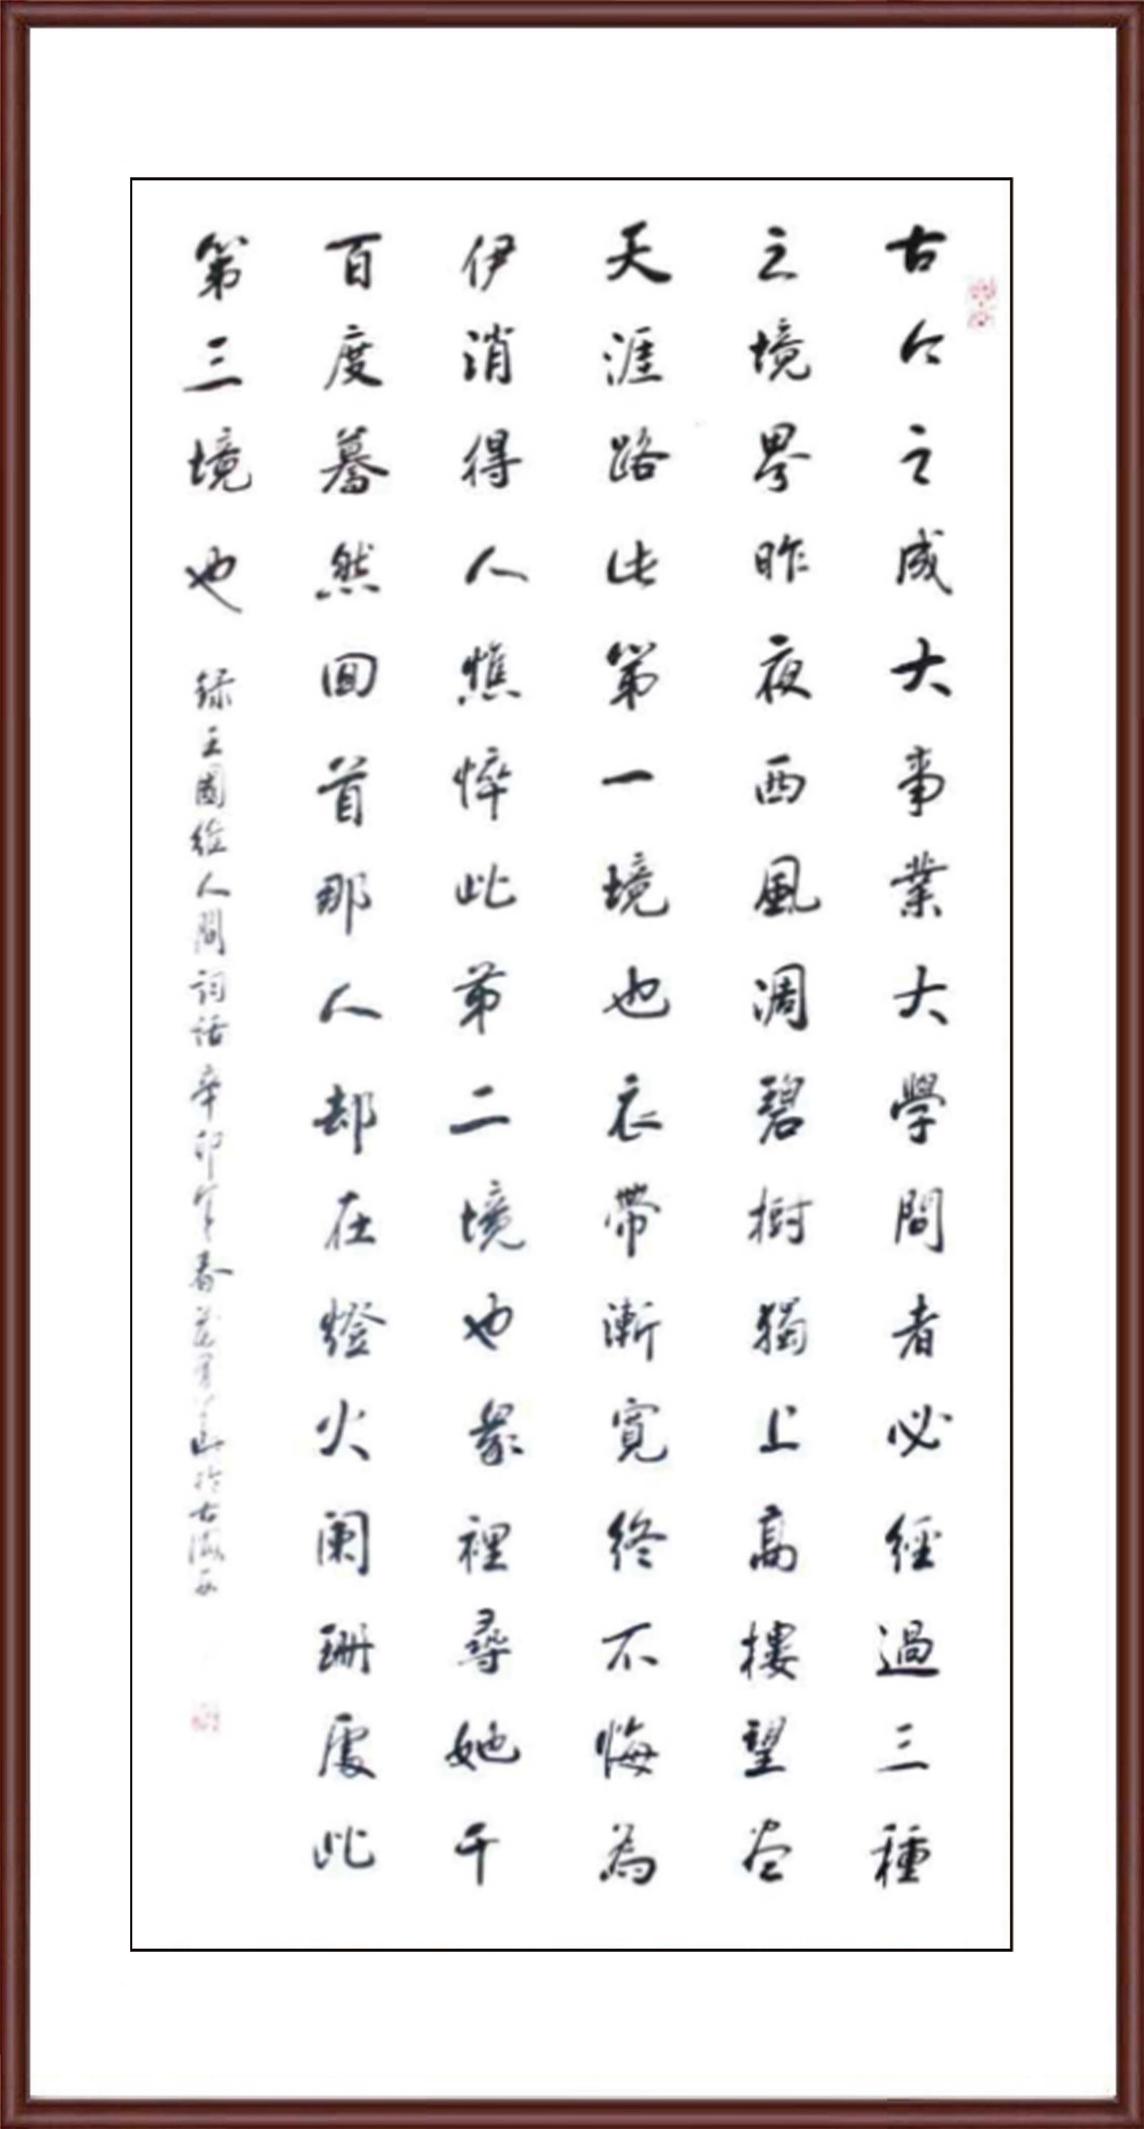 古今之成大事業大學問者必經過三種
之境界昨夜西風凋碧樹獨上高樓望尽
天涯路此第一境也衣帶漸寬終不悔為
伊消得人憔悴此第二境也衆裡尋她千
百度驀然回首那人却在燈火闌珊處此
第三境也 錄王國維人間詞話辛卯年春